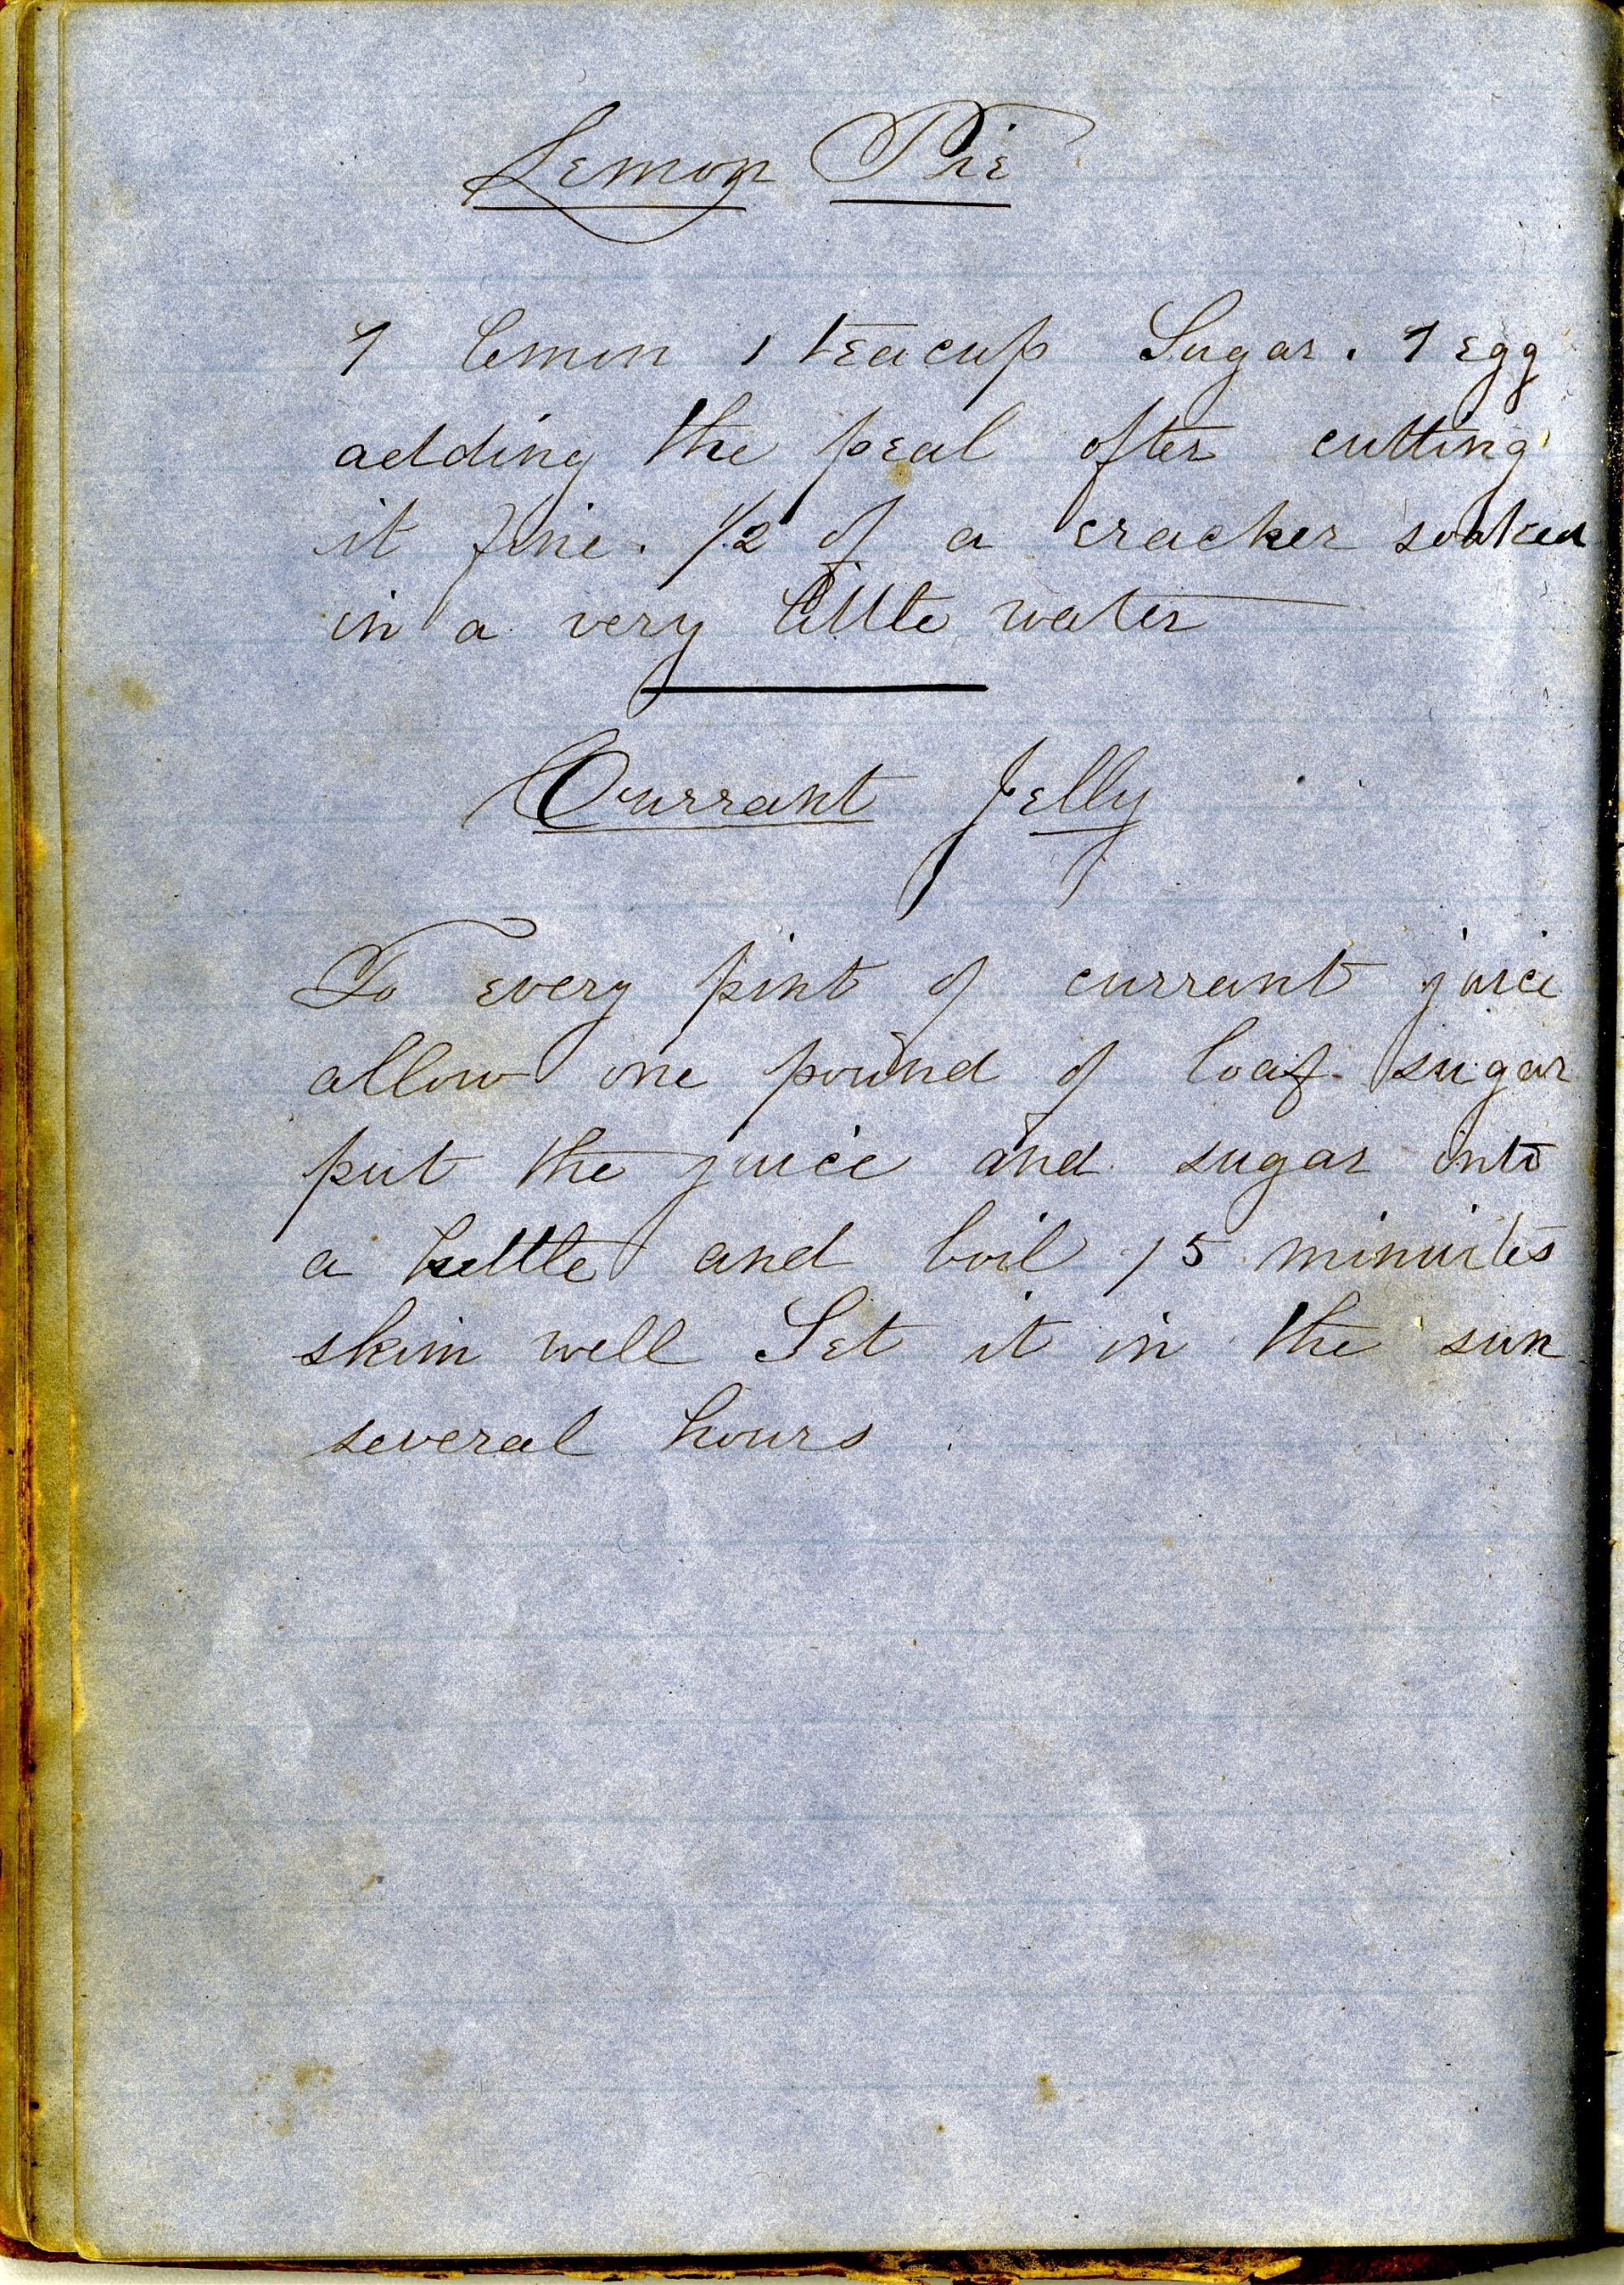 Lemon Pie
1 lemon 1 teacup Sugar. 1 egg
adding the peal after cutting
it fine. 1/2 of a cracker soaked
in a very little water
Currant Jelly
To every pint of currant juice
allow one pound of loaf sugar
put the juice and sugar into
a kettle and boil 15 minuites
skim well Set it in the sun
several hours